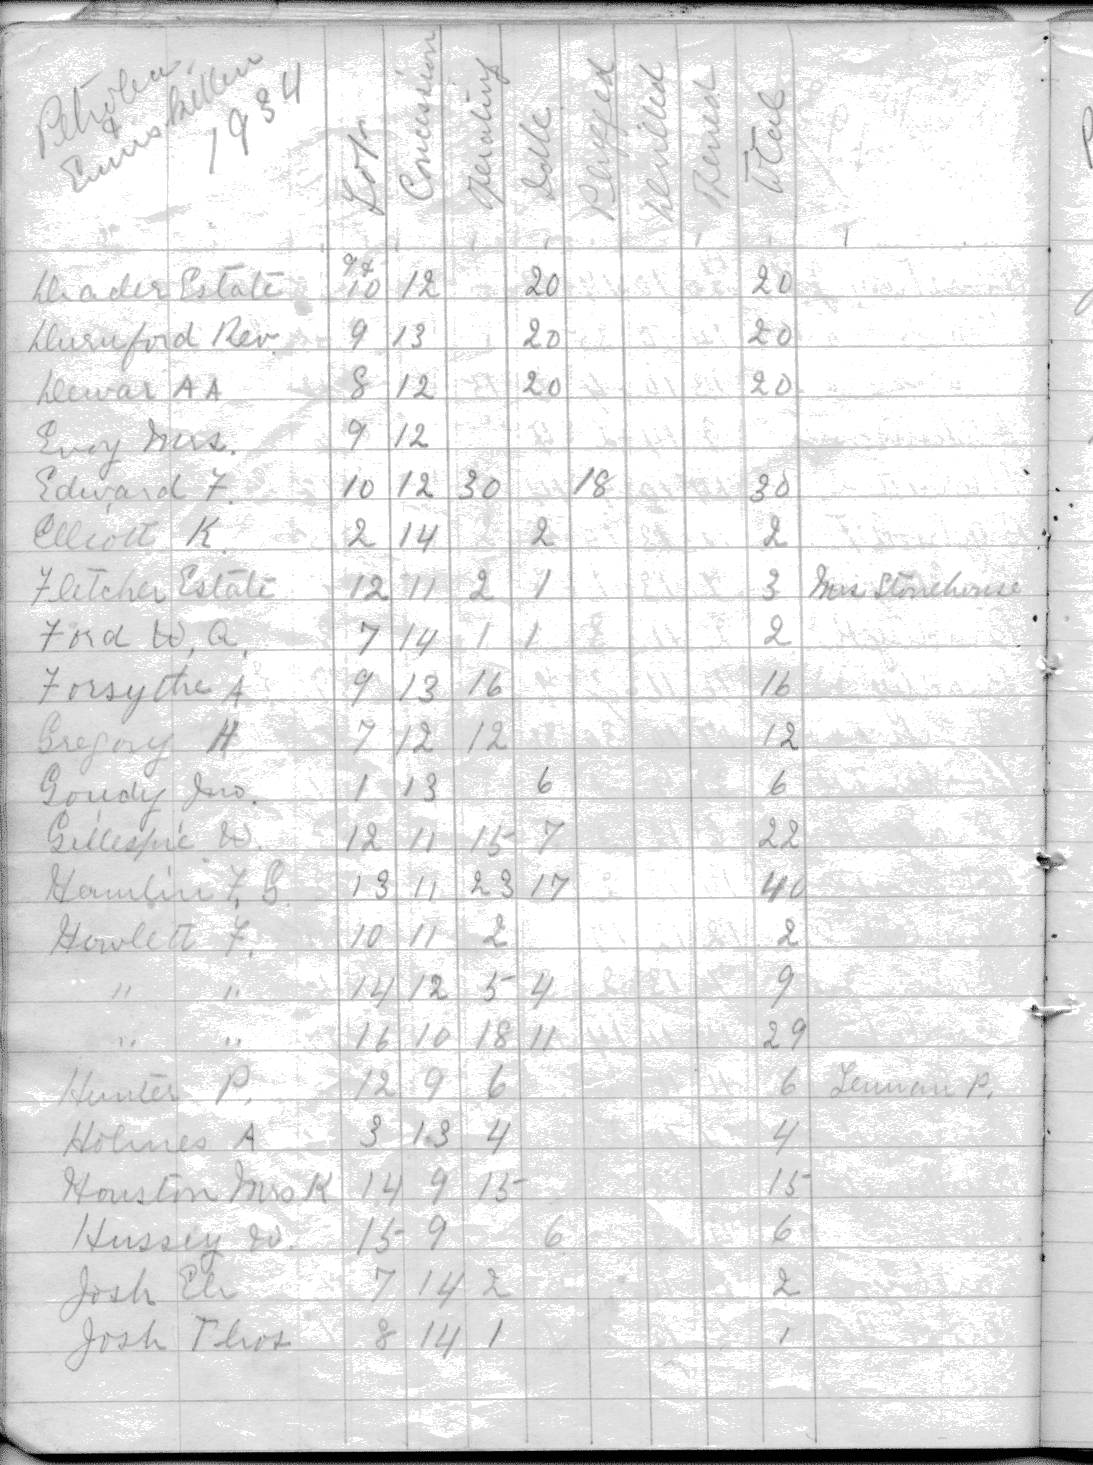 Petrolea &
Enniskillen
1934
Lot Concession Operating Idle Plugged Drilled Total
Deader Estate 9& 10 12 20 20
Durnford Rev. 9 13 20 20
Dewar A A 8 12 20 20
Evoy Mrs. 9 12
Edward F. 10 12 30 18 30
Elliott K. 2 14 2 2
Fletcher Estate 12 11 2 1 3 Mrs. Stonehouse
Ford W. A. 7 14 1 1 2
Forsythe A 9 13 16 16
Gregory H 7 12 12 12
Goudy Jno. 1 13 6 6
Gillespie W. 12 11 15 7 22
Hamlin F. G. 13 11 23 17 40
Howlett F. 10 11 2 2
" " 14 12 5 4 9
" " 16 10 18 11 29
Hunter P. 12 9 6 6 P.
Holmes A 3 13 4 4
Houston Mrs K 14 9 15 15
Hussey W. 15 9 6 6
Josh Eli 7 14 2 2
Josh Thos 8 14 1 1